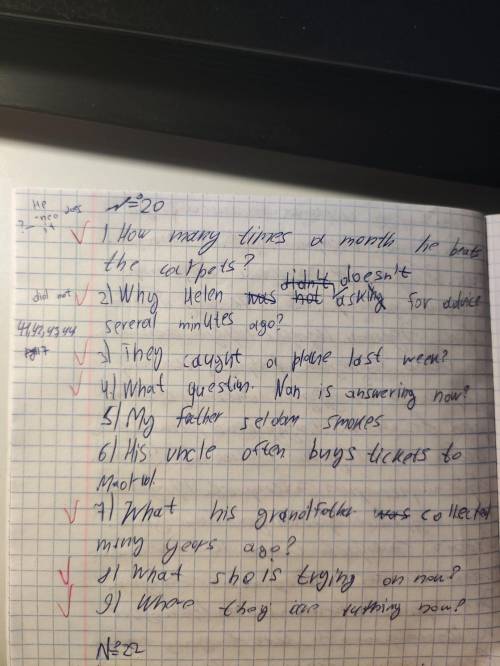 №20
1) How many times a month he beats
the carpets?
didn't doesn't
2) Why Helen was not asking for advice
did not
several minutes ago?
41,42,43,44
3) They caught a plane last week?
4) What question Nan is answering now?
5) My father seldom smokes
6) His uncle often buys tickets to
7) What his grandfather was collected
many years ago?
8) What she is trying on now?
9) Where they are running now?
№22